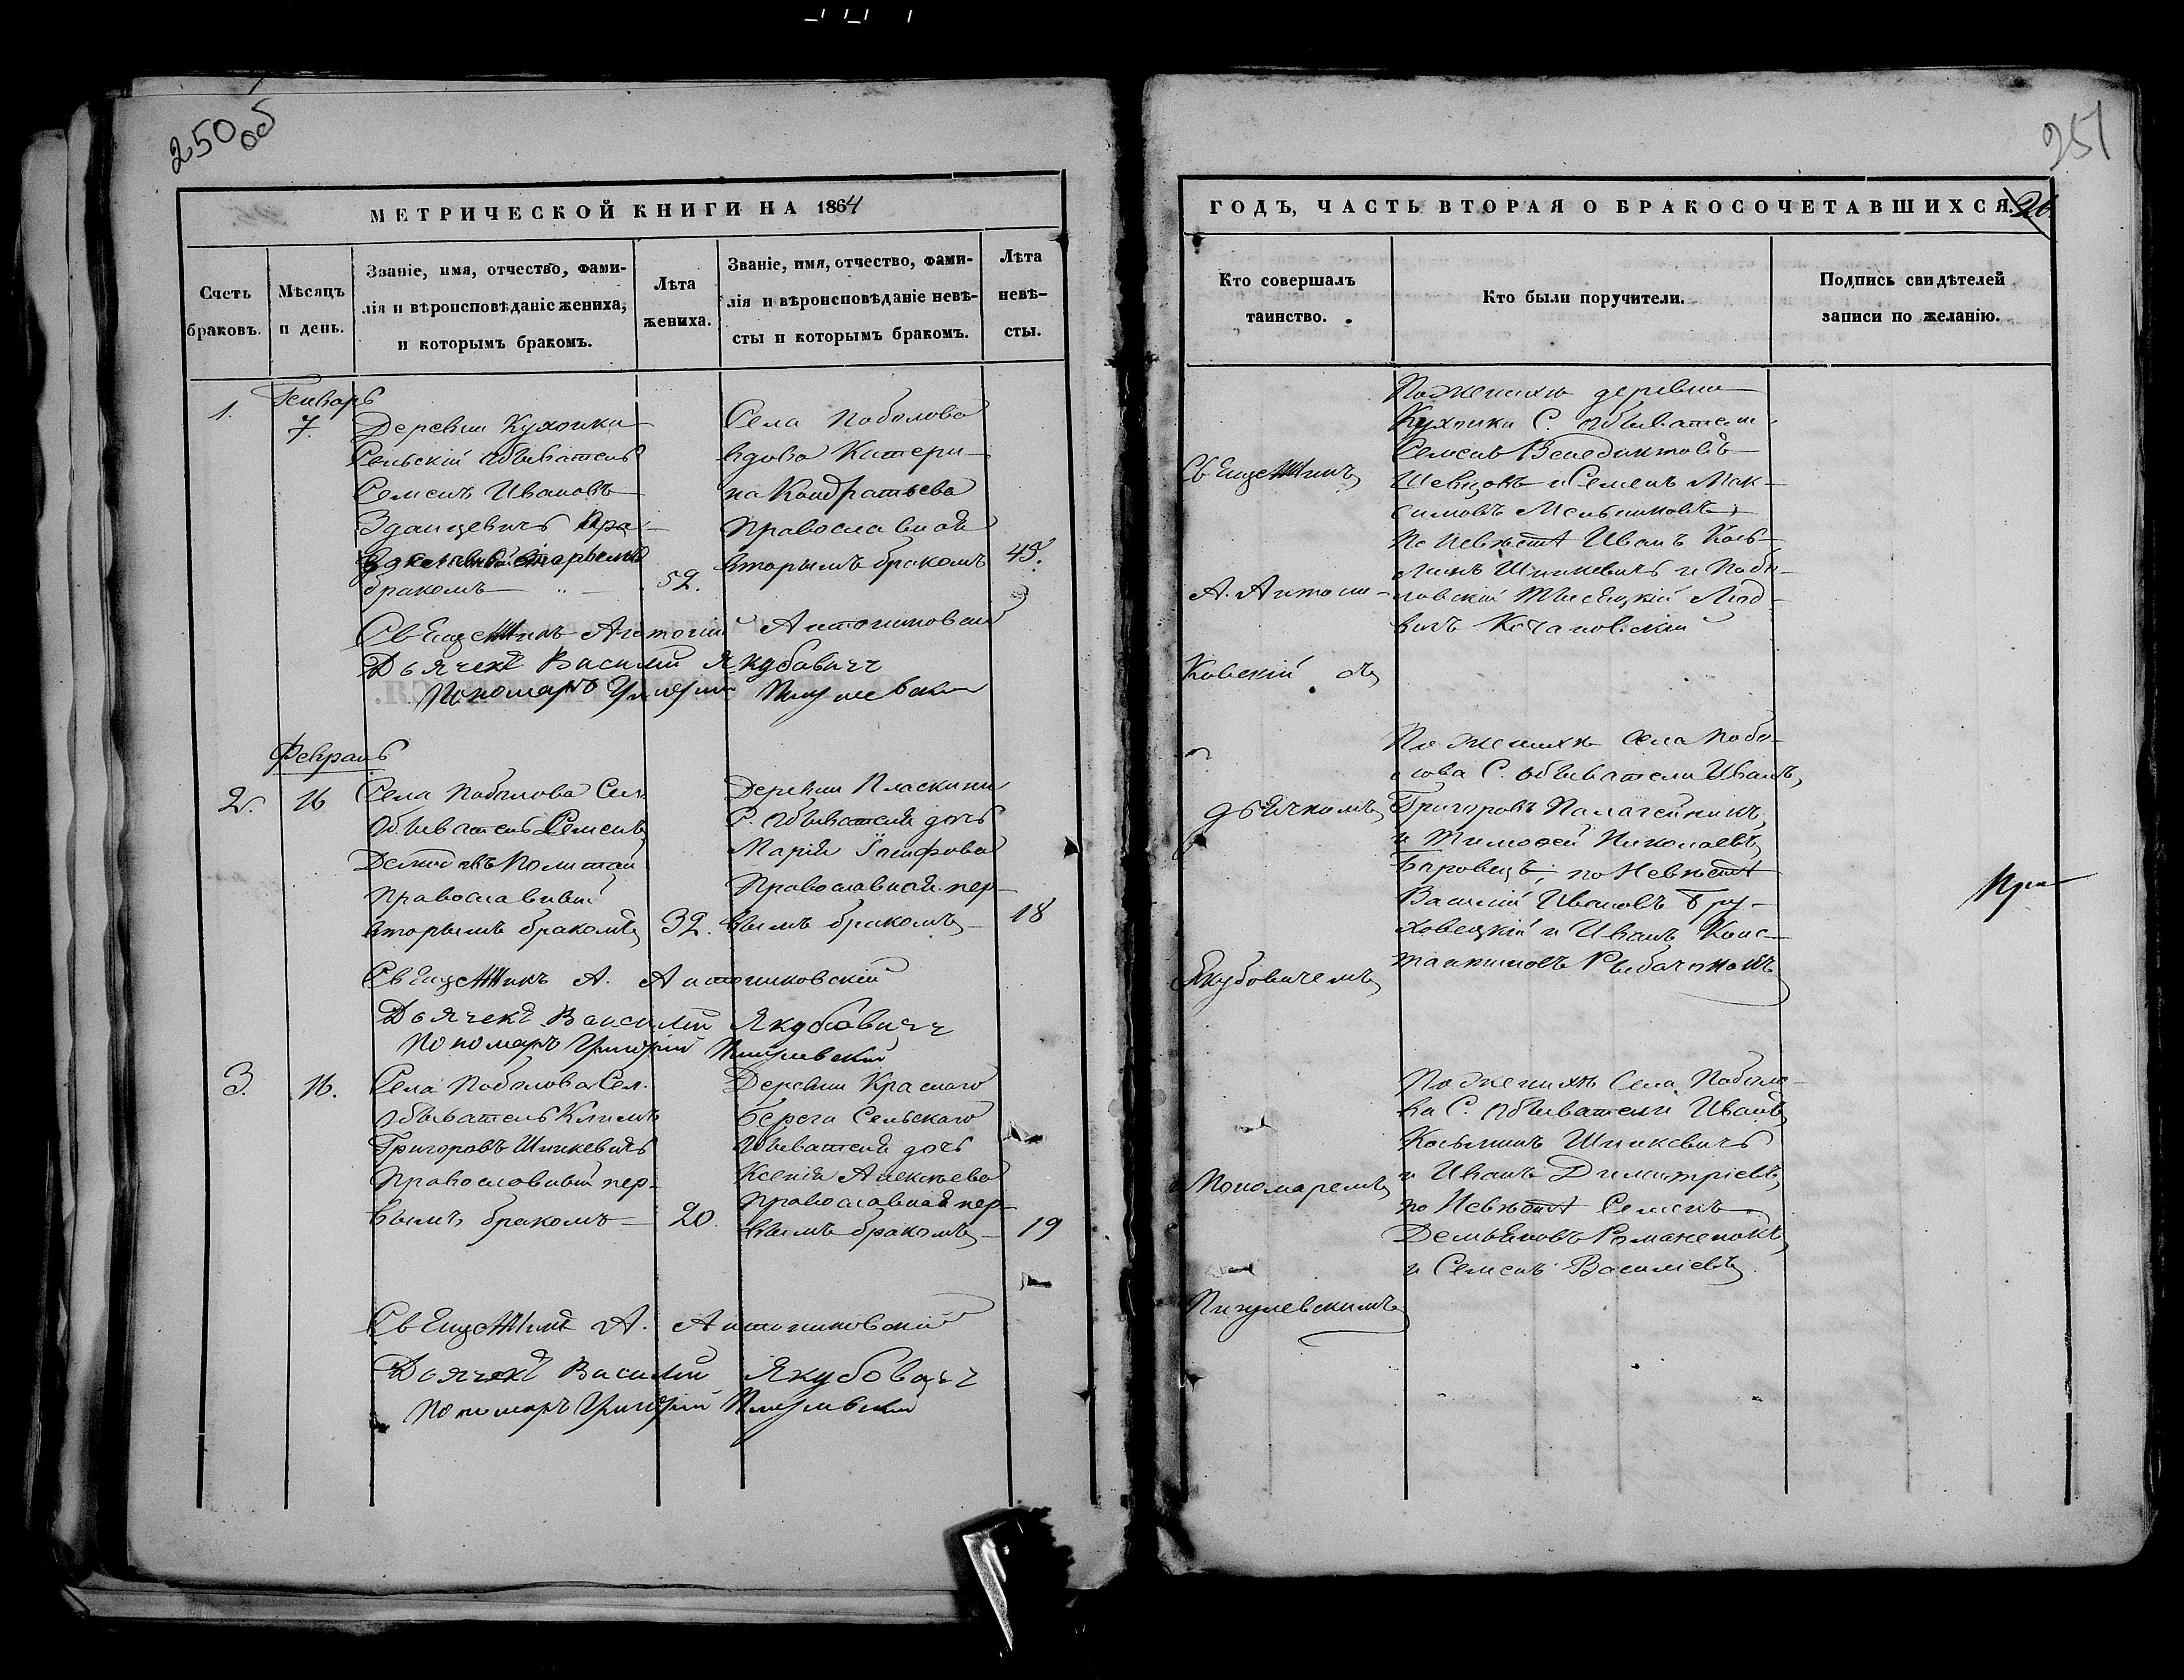 250 об
МЕТРИЧЕСКОЙ КНИГИ НА 1864
Счетъ браковъ.
Мѣсяцъ и день.
Званіе, имя, отчество, фами-
лія и вѣроисповѣданіе жениха,
и которымъ бракомъ.
Лѣта
жениха.
Званіе, имя, отчество, фами-
лія и вѣроисповѣданіе невѣ-
сты и которымъ бракомъ.
Лѣта
невѣ-
сты.
1.
Генварь
7.
Деревни Кухонки
Сельскій обыватель
Семенъ Ивановъ
Зданцевичъ Пра-
вославный вторымъ
бракомъ
52.
Села Поболова
вдова Катери-
на Кондратьева
Православной
вторымъ бракомъ
45.
Священникъ Антоній Антониковскій
Дьячекъ Василій Якубовичъ
Пономарь Григорій Пигулевскій
Февраль
2.
16
Села Поболова Сел.
обыватель Семенъ
Православный
вторымъ бракомъ
32.
Деревни Пласкини
С. обывателя дочь
Марія Іосифова
Православная пер-
вымъ бракомъ
18
Священникъ А. Антониковскій
Дьячекъ Василій Якубовичъ
Пономарь Григорій Пигулевскій
3.
16.
Села Поболова Сел.
обыватель Климъ
Григоровъ Шпикевичъ
Православный пер-
вымъ бракомъ
20.
Деревни Краснаго
берега Сельскаго
обывателя дочь
Ксенія Алексѣева
Православная пер-
вымъ бракомъ
19
Священникъ А. Антониковскій
Дьячекъ Василій Якубовичъ
Пономарь Григорій Пигулевскій
251
ГОДЪ, ЧАСТЬ ВТОРАЯ О БРАКОСОЧЕТАВШИХСЯ.
26
Кто совершалъ
таинство.
Кто были поручители.
Подпись свидѣтелей
записи по желанію.
Священникъ
А. Антони-
ковскій съ
дьячкомъ
Якубовичемъ
Пономаремъ
Пигулевскимъ
По женихѣ деревни
Кухонки С. обыватели
Семенъ Венедиктовъ
Шевцовъ и Семенъ Мак-
симовъ Мельниковъ,
По невѣстѣ Иванъ Кось-
минъ Шпикевичъ и Побо-
ловскій Люд-
вигъ Качановскій
По женихѣ Села Побо-
лова С. обыватели Иванъ
Григоровъ Палагейникъ
и Тимофей Николаевъ
Боровецъ, по Невѣстѣ
Василій Ивановъ Гру-
ховецкій и Иванъ Конс-
тантиновъ Рыбаченокъ
По женихѣ Села Поболо-
ва С. обыватели Иванъ
Косьминъ Шпикевичъ
и Иванъ Димитріевъ,
по Невѣстѣ Семенъ
Демьяновъ Романенокъ
и Семенъ Василіевъ
При